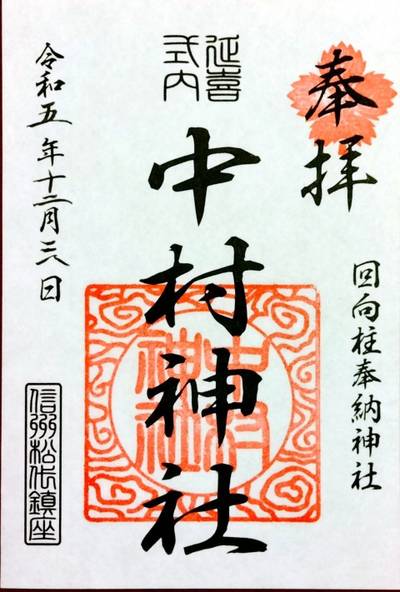 奉拝
回向柱奉納神社
延喜
式内
中村神社
中村
神社
令和五年十二月二八日
信州松代鎮座